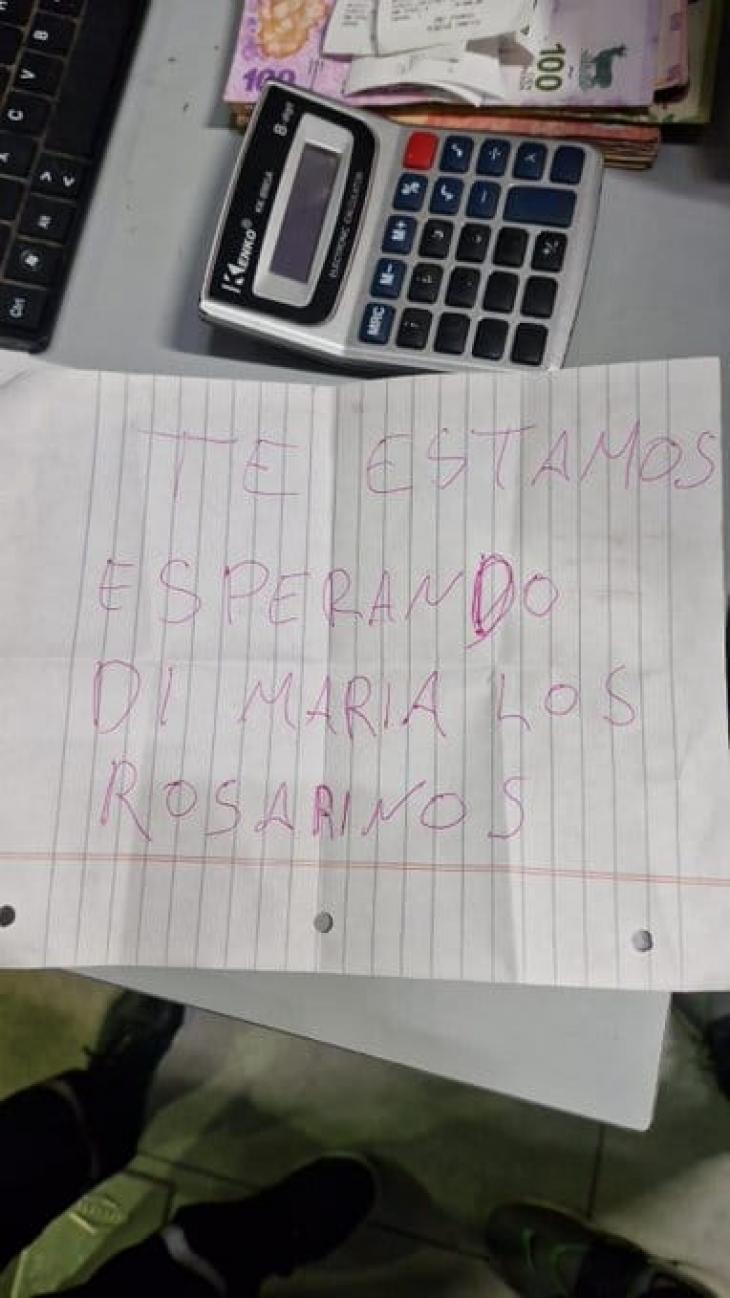 100
100
KENKO®
8-digit
ELECTRONIC CALCULATOR
M+
M-
MRC
B
V
C
Alt
Ctrl
TE ESTAMOS
ESPERANDO
DI MARIA LOS
ROSARINOS